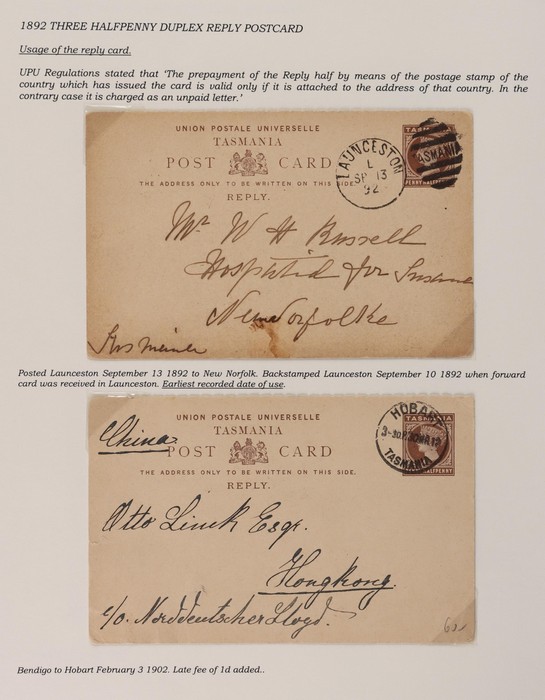 1892 THREE HALFPENNY DUPLEX REPLY POSTCARD
Usage of the reply card.
UPU Regulations stated that ‘The prepayment of the Reply half by means of the postage stamp of the
country which has issued the card is valid only if it is attached to the address of that country. In the
contrary case it is charged as an unpaid letter.’
UNION POSTALE UNIVERSELLE
TASMANIA
POST CARD
THE ADDRESS ONLY TO BE WRITTEN ON THIS SIDE.
REPLY.
LAUNCESTON
L
SP 13
92
TASMANIA
Mr W H Russell
Hospital for Insane
New Norfolke
Posted Launceston September 13 1892 to New Norfolk. Backstamped Launceston September 10 1892 when forward
card was received in Launceston. Earliest recorded date of use.
UNION POSTALE UNIVERSELLE
TASMANIA
China
POST CARD
THE ADDRESS ONLY TO BE WRITTEN ON THIS SIDE.
REPLY.
HOBART
TASMANIA
HALFPENNY
Otto Linck Esqr.
Hongkong.
c/o. Norddeutscher Lloyd.
Bendigo to Hobart February 3 1902. Late fee of 1d added..